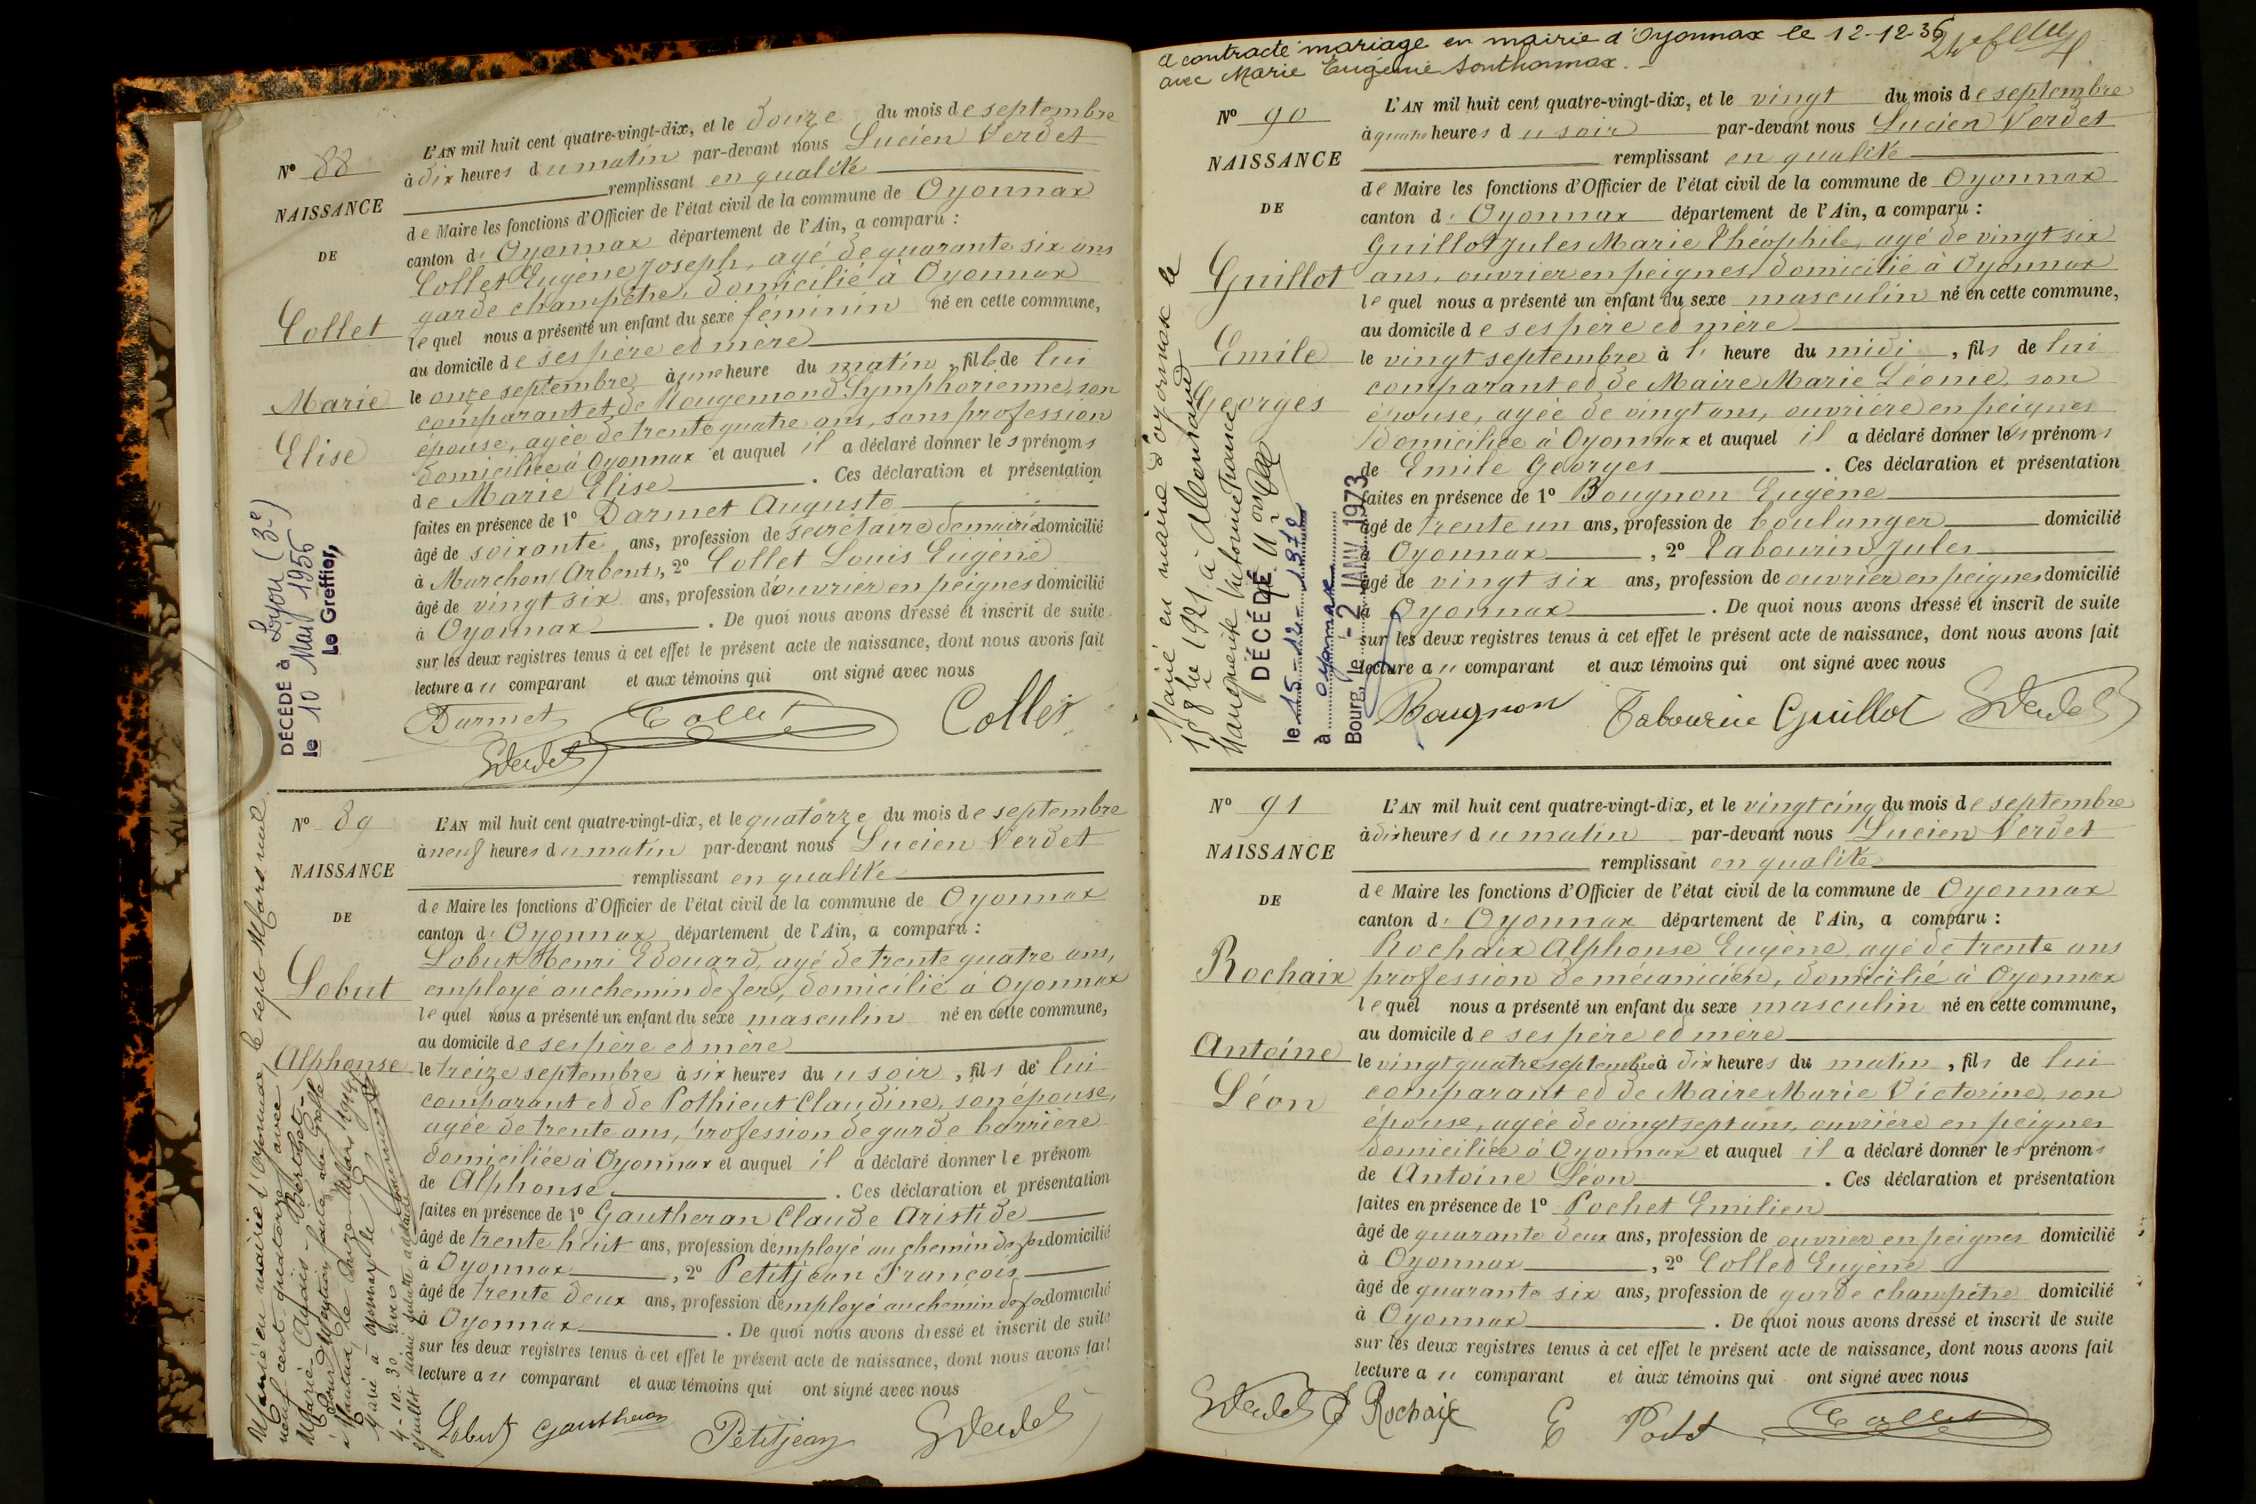 N° 88
NAISSANCE
DE
Collet
Marie
Elise
DÉCÉDÉ à Lyon (3e)
le 10 Mai 1956
Le Greffier,
L'AN mil huit cent quatre-vingt-dix, et le douze du mois de septembre
à dix heures du matin par-devant nous Lucien Verdet
remplissant en qualité
de Maire les fonctions d'Officier de l'état civil de la commune de Oyonnax
canton d' Oyonnax département de l'Ain, a comparu :
Collet Eugène Joseph, agé de quarante six ans
garde champêtre, domicilié à Oyonnax
lequel nous a présenté un enfant du sexe féminin né en cette commune,
au domicile de ses père et mère
le onze septembre à une heure du matin, fille de lui
comparant et de Rougemond Symphorienne, son
épouse, agée de trente quatre ans, sans profession
domiciliée à Oyonnax et auquel il a déclaré donner les prénoms
de Marie Elise. Ces déclaration et présentation
faites en présence de 1° Darmet Auguste
âgé de soixante ans, profession de secrétaire de mairie domicilié
à Marchon (Arbent), 2° Collet Louis Eugène
âgé de vingt six ans, profession d'ouvrier en peignes domicilié
à Oyonnax. De quoi nous avons dressé et inscrit de suite
sur les deux registres tenus à cet effet le présent acte de naissance, dont nous avons fait
lecture au comparant et aux témoins qui ont signé avec nous
Darmet Collet Collet
Verdet
N° 89
NAISSANCE
DE
Lobut
Alphonse
Marié en mairie d'Oyonnax le sept Mars mil
neuf cent quatorze avec
L'AN mil huit cent quatre-vingt-dix, et le quatorze du mois de septembre
à neuf heures du matin par-devant nous Lucien Verdet
remplissant en qualité
de Maire les fonctions d'Officier de l'état civil de la commune de Oyonnax
canton d' Oyonnax département de l'Ain, a comparu :
Lobut Henri Edouard, agé de trente quatre ans,
employé au chemin de fer, domicilié à Oyonnax
lequel nous a présenté un enfant du sexe masculin né en cette commune,
au domicile de ses père et mère
le treize septembre à six heures du soir, fils de lui
comparant et de Pothieut Claudine, son épouse,
agée de trente ans, profession de garde barrière
domiciliée à Oyonnax et auquel il a déclaré donner le prénom
de Alphonse. Ces déclaration et présentation
faites en présence de 1° Gautheran Claude Aristide
âgé de trente huit ans, profession d'employé au chemin de fer domicilié
à Oyonnax, 2° Petitjean François
âgé de trente deux ans, profession d'employé au chemin de fer domicilié
à Oyonnax. De quoi nous avons dressé et inscrit de suite
sur les deux registres tenus à cet effet le présent acte de naissance, dont nous avons fait
lecture au comparant et aux témoins qui ont signé avec nous
Lobut Gautheran Petitjean Verdet
a contracté mariage en mairie d'Oyonnax le 12-12-36
avec Marie Eugénie Sonthonnax.
N° 90
NAISSANCE
DE
Guillot
Emile
Georges
Marié en mairie d'Oyonnax le
DÉCÉDÉ
le 15-12-1972
à Oyonnax
Bourg, le -2 JANV 1973
L'AN mil huit cent quatre-vingt-dix, et le vingt du mois de septembre
à quatre heures du soir par-devant nous Lucien Verdet
remplissant en qualité
de Maire les fonctions d'Officier de l'état civil de la commune de Oyonnax
canton d' Oyonnax département de l'Ain, a comparu :
Guillot Jules Marie Théophile, agé de vingt six
ans, ouvrier en peignes, domicilié à Oyonnax
lequel nous a présenté un enfant du sexe masculin né en cette commune,
au domicile de ses père et mère
le vingt septembre à l' heure du midi, fils de lui
comparant et de Maire Marie Léonie, son
épouse, agée de vingt ans, ouvrière en peignes
domiciliée à Oyonnax et auquel il a déclaré donner les prénoms
de Emile Georges. Ces déclaration et présentation
faites en présence de 1° Bougnon Eugène
âgé de trente un ans, profession de boulanger domicilié
à Oyonnax, 2° Tabourin Jules
âgé de vingt six ans, profession de ouvrier en peignes domicilié
à Oyonnax. De quoi nous avons dressé et inscrit de suite
sur les deux registres tenus à cet effet le présent acte de naissance, dont nous avons fait
lecture au comparant et aux témoins qui ont signé avec nous
Bougnon Tabourin Guillot Verdet
N° 91
NAISSANCE
DE
Rochaix
Antoine
Léon
L'AN mil huit cent quatre-vingt-dix, et le vingt cinq du mois de septembre
à dix heures du matin par-devant nous Lucien Verdet
remplissant en qualité
de Maire les fonctions d'Officier de l'état civil de la commune de Oyonnax
canton d' Oyonnax département de l'Ain, a comparu :
Rochaix Alphonse Eugène, agé de trente ans
profession de mécanicien, domicilié à Oyonnax
lequel nous a présenté un enfant du sexe masculin né en cette commune,
au domicile de ses père et mère
le vingt quatre septembre à dix heures du matin, fils de lui
comparant et de Maire Marie Victorine, son
épouse, agée de vingt sept ans, ouvrière en peignes
domiciliée à Oyonnax et auquel il a déclaré donner les prénoms
de Antoine Léon. Ces déclaration et présentation
faites en présence de 1° Pochet Emilien
âgé de quarante deux ans, profession de ouvrier en peignes domicilié
à Oyonnax, 2° Collet Eugène
âgé de quarante six ans, profession de garde champêtre domicilié
à Oyonnax. De quoi nous avons dressé et inscrit de suite
sur les deux registres tenus à cet effet le présent acte de naissance, dont nous avons fait
lecture au comparant et aux témoins qui ont signé avec nous
Verdet Rochaix E Pochet Collet